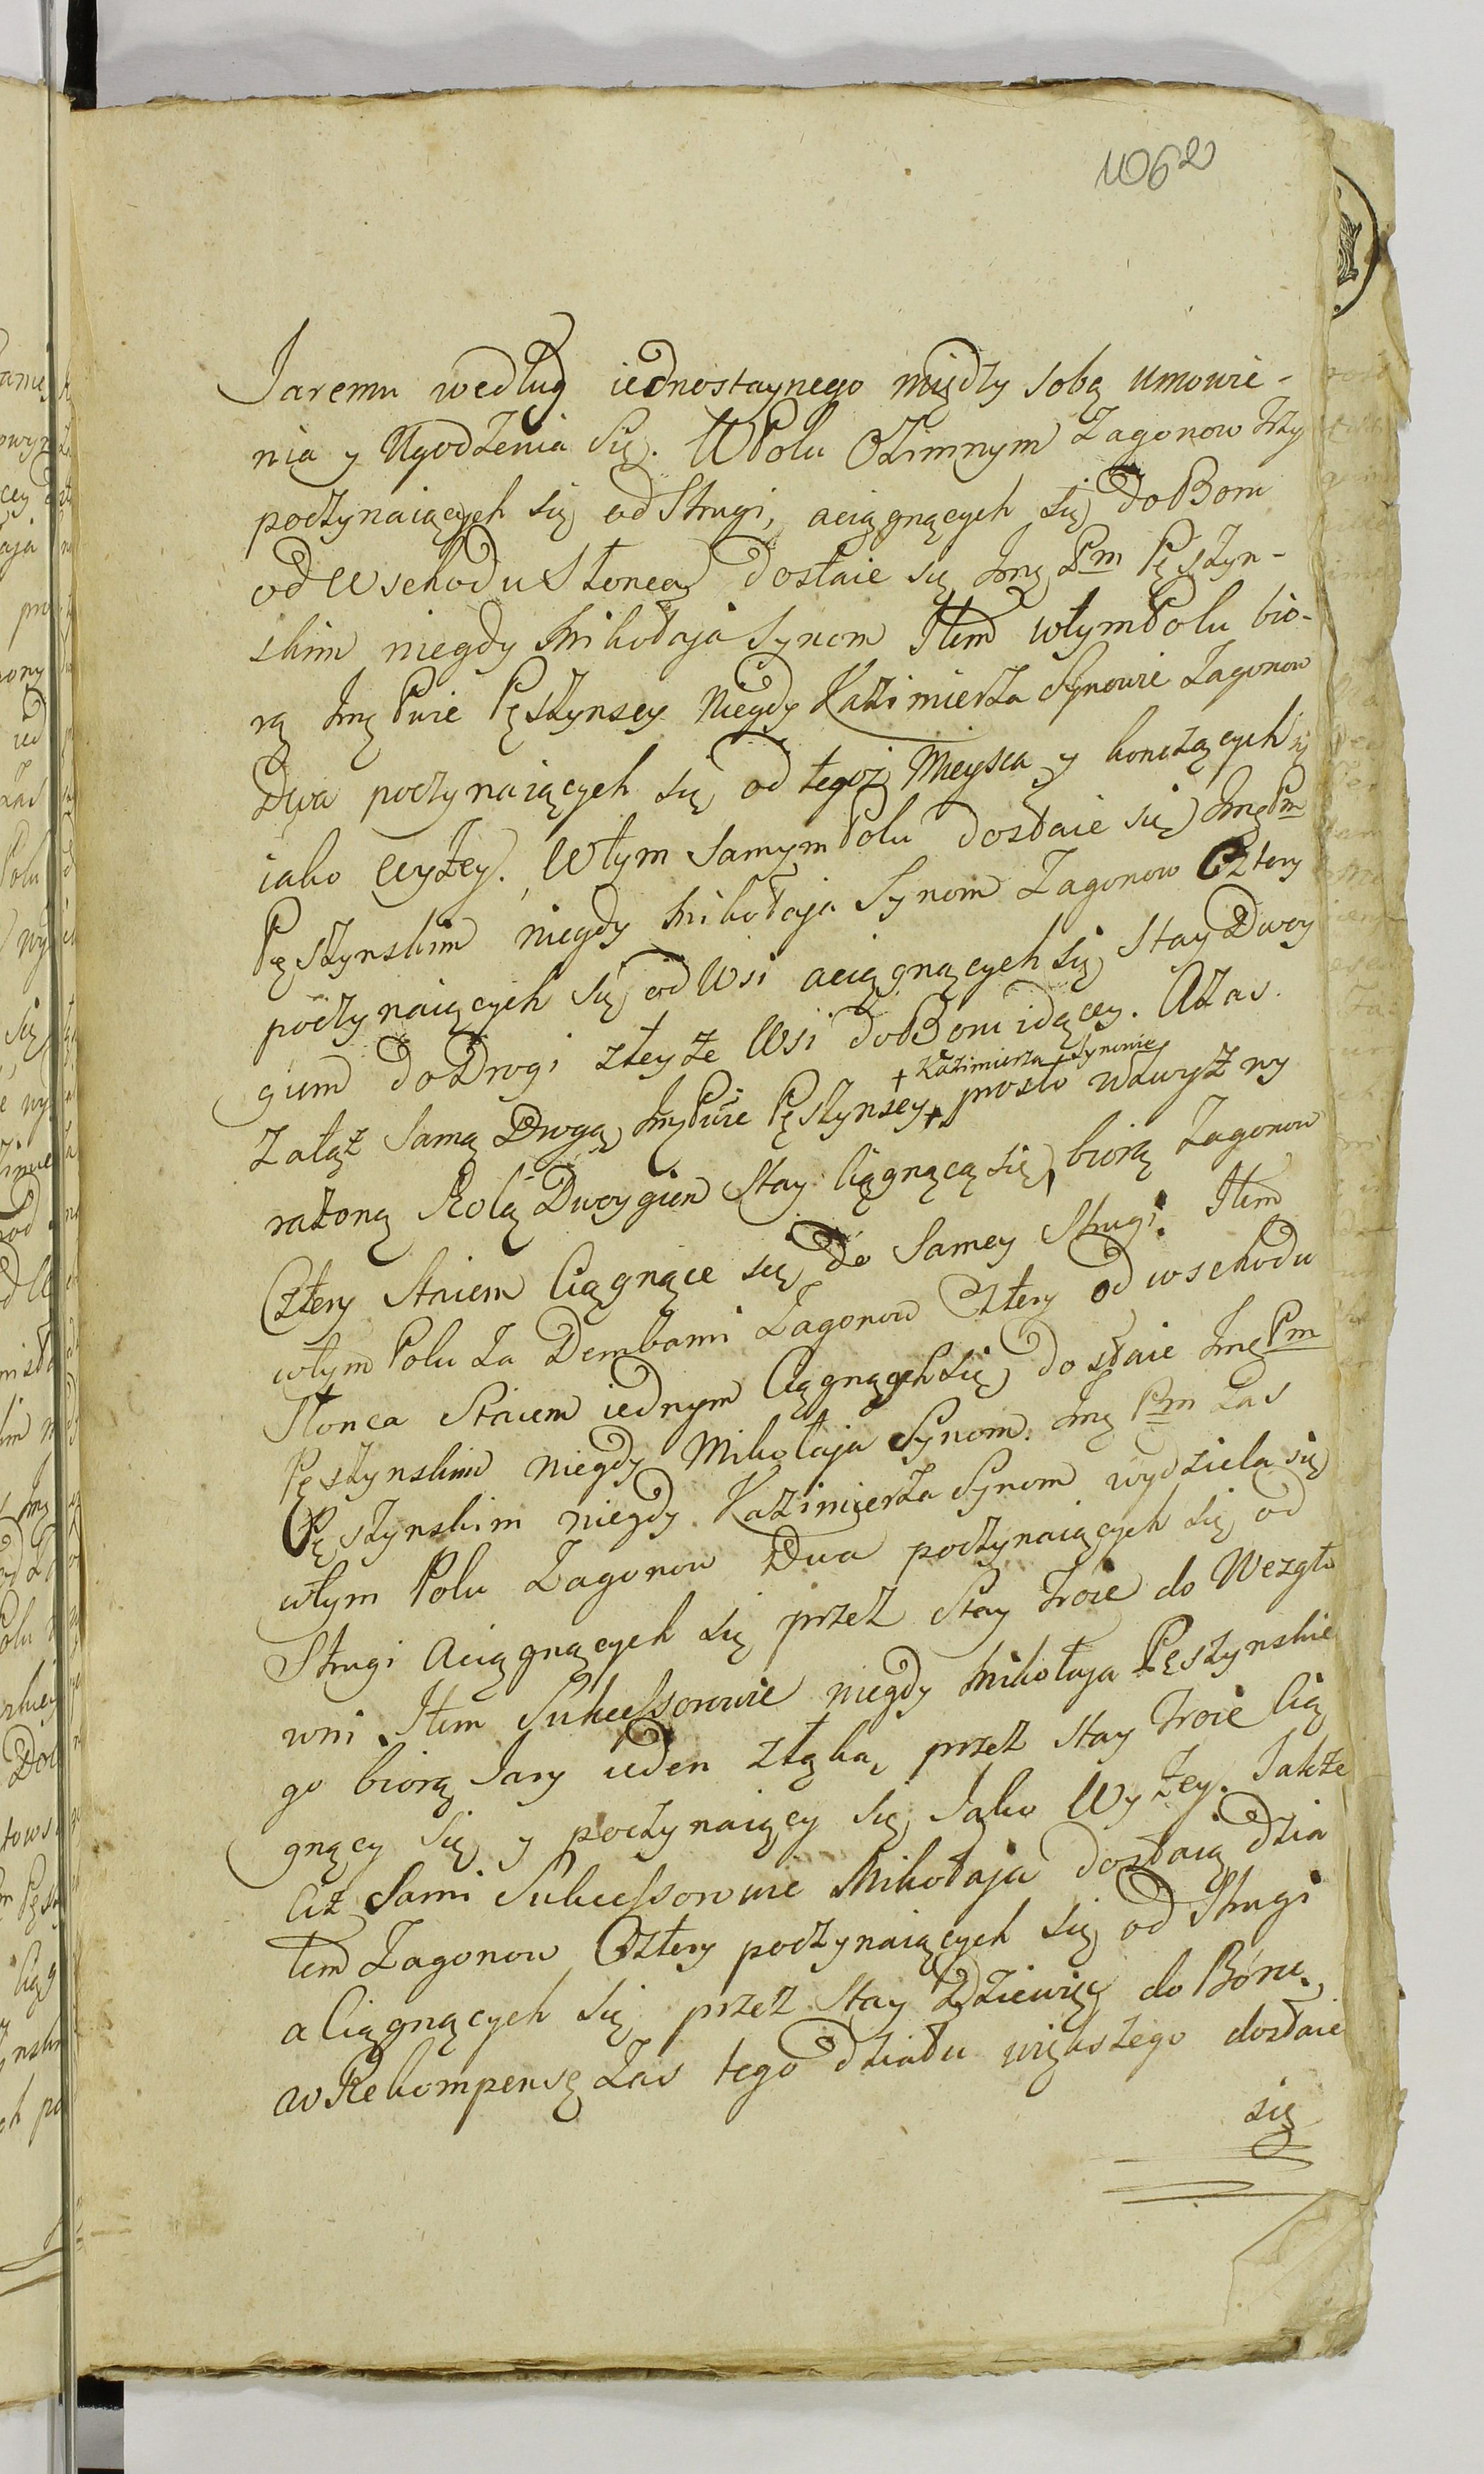 1062
Jaremu według iednostaynego między sobą umowie-
nia y Ugodzenia Się. W Polu Ozimnym Zagonow trzy
poczynaiących się od Strugi, aciągnących się do Boru
od Wschodu Słonca, dostaie się Jmę Pm Pęszyn-
skim niegdy Mikołaja Synom Item wtym Polu bio-
rą Jmę Pwie Pęszynscy Niegdy Kazimierza Synowie Zagonow
Dwa poczynaiących się od tegoż Mieysca y konczących się
iako wyżey. Wtym Samym Polu dostaie się Jmę Pm
Pęszynskim niegdy Mikołaja Synom Zagonow Cztery
poczynaiących Się od Wsi aciągnących się Stay Dwoy
giem do Drogi zteyże Wsi do Boru idącey. A Zas
Zatąż Samą Drogą Jmę Pwie Pęszynscy + prosto wawysz wy
+ Kazimierza Synowie
rażoną Rolą Dwoygiem Stay ciągnącą się, biorą Zagonow
Cztery Staiem Ciągnące się do Samey Strugi. Item
wtym Polu Za Dembami Zagonow Cztery od wschodu
Słonca Staiem iednym Ciągnących się dostaie Jmę Pm
Pęszynskim niegdy Mikołaja Synom. Jmę Pm Zas
Pęszynskim niegdy Kazimierza Synom wydziela się
wtym Polu Zagonow Dwa poczynaiących się od
Strugi aciągnących się przez Stay troie do Wezgło
wni. Item Sukcessorowie niegdy Mikołaja Pęszynskie
go biorą Jary ieden złąką przez Stay troie Cią
gnący Się y poczynaiący się Jako Wyżey. Jakże
Ciż Sami Sukcessorowie Mikołaja dostaią dzia
łem Zagonow Cztery poczynaiących się od Strugi
a Ciągnących się przez Stay Dziewięć do Boru,
w Rekompensę Zas tego działu większego dostaie
się